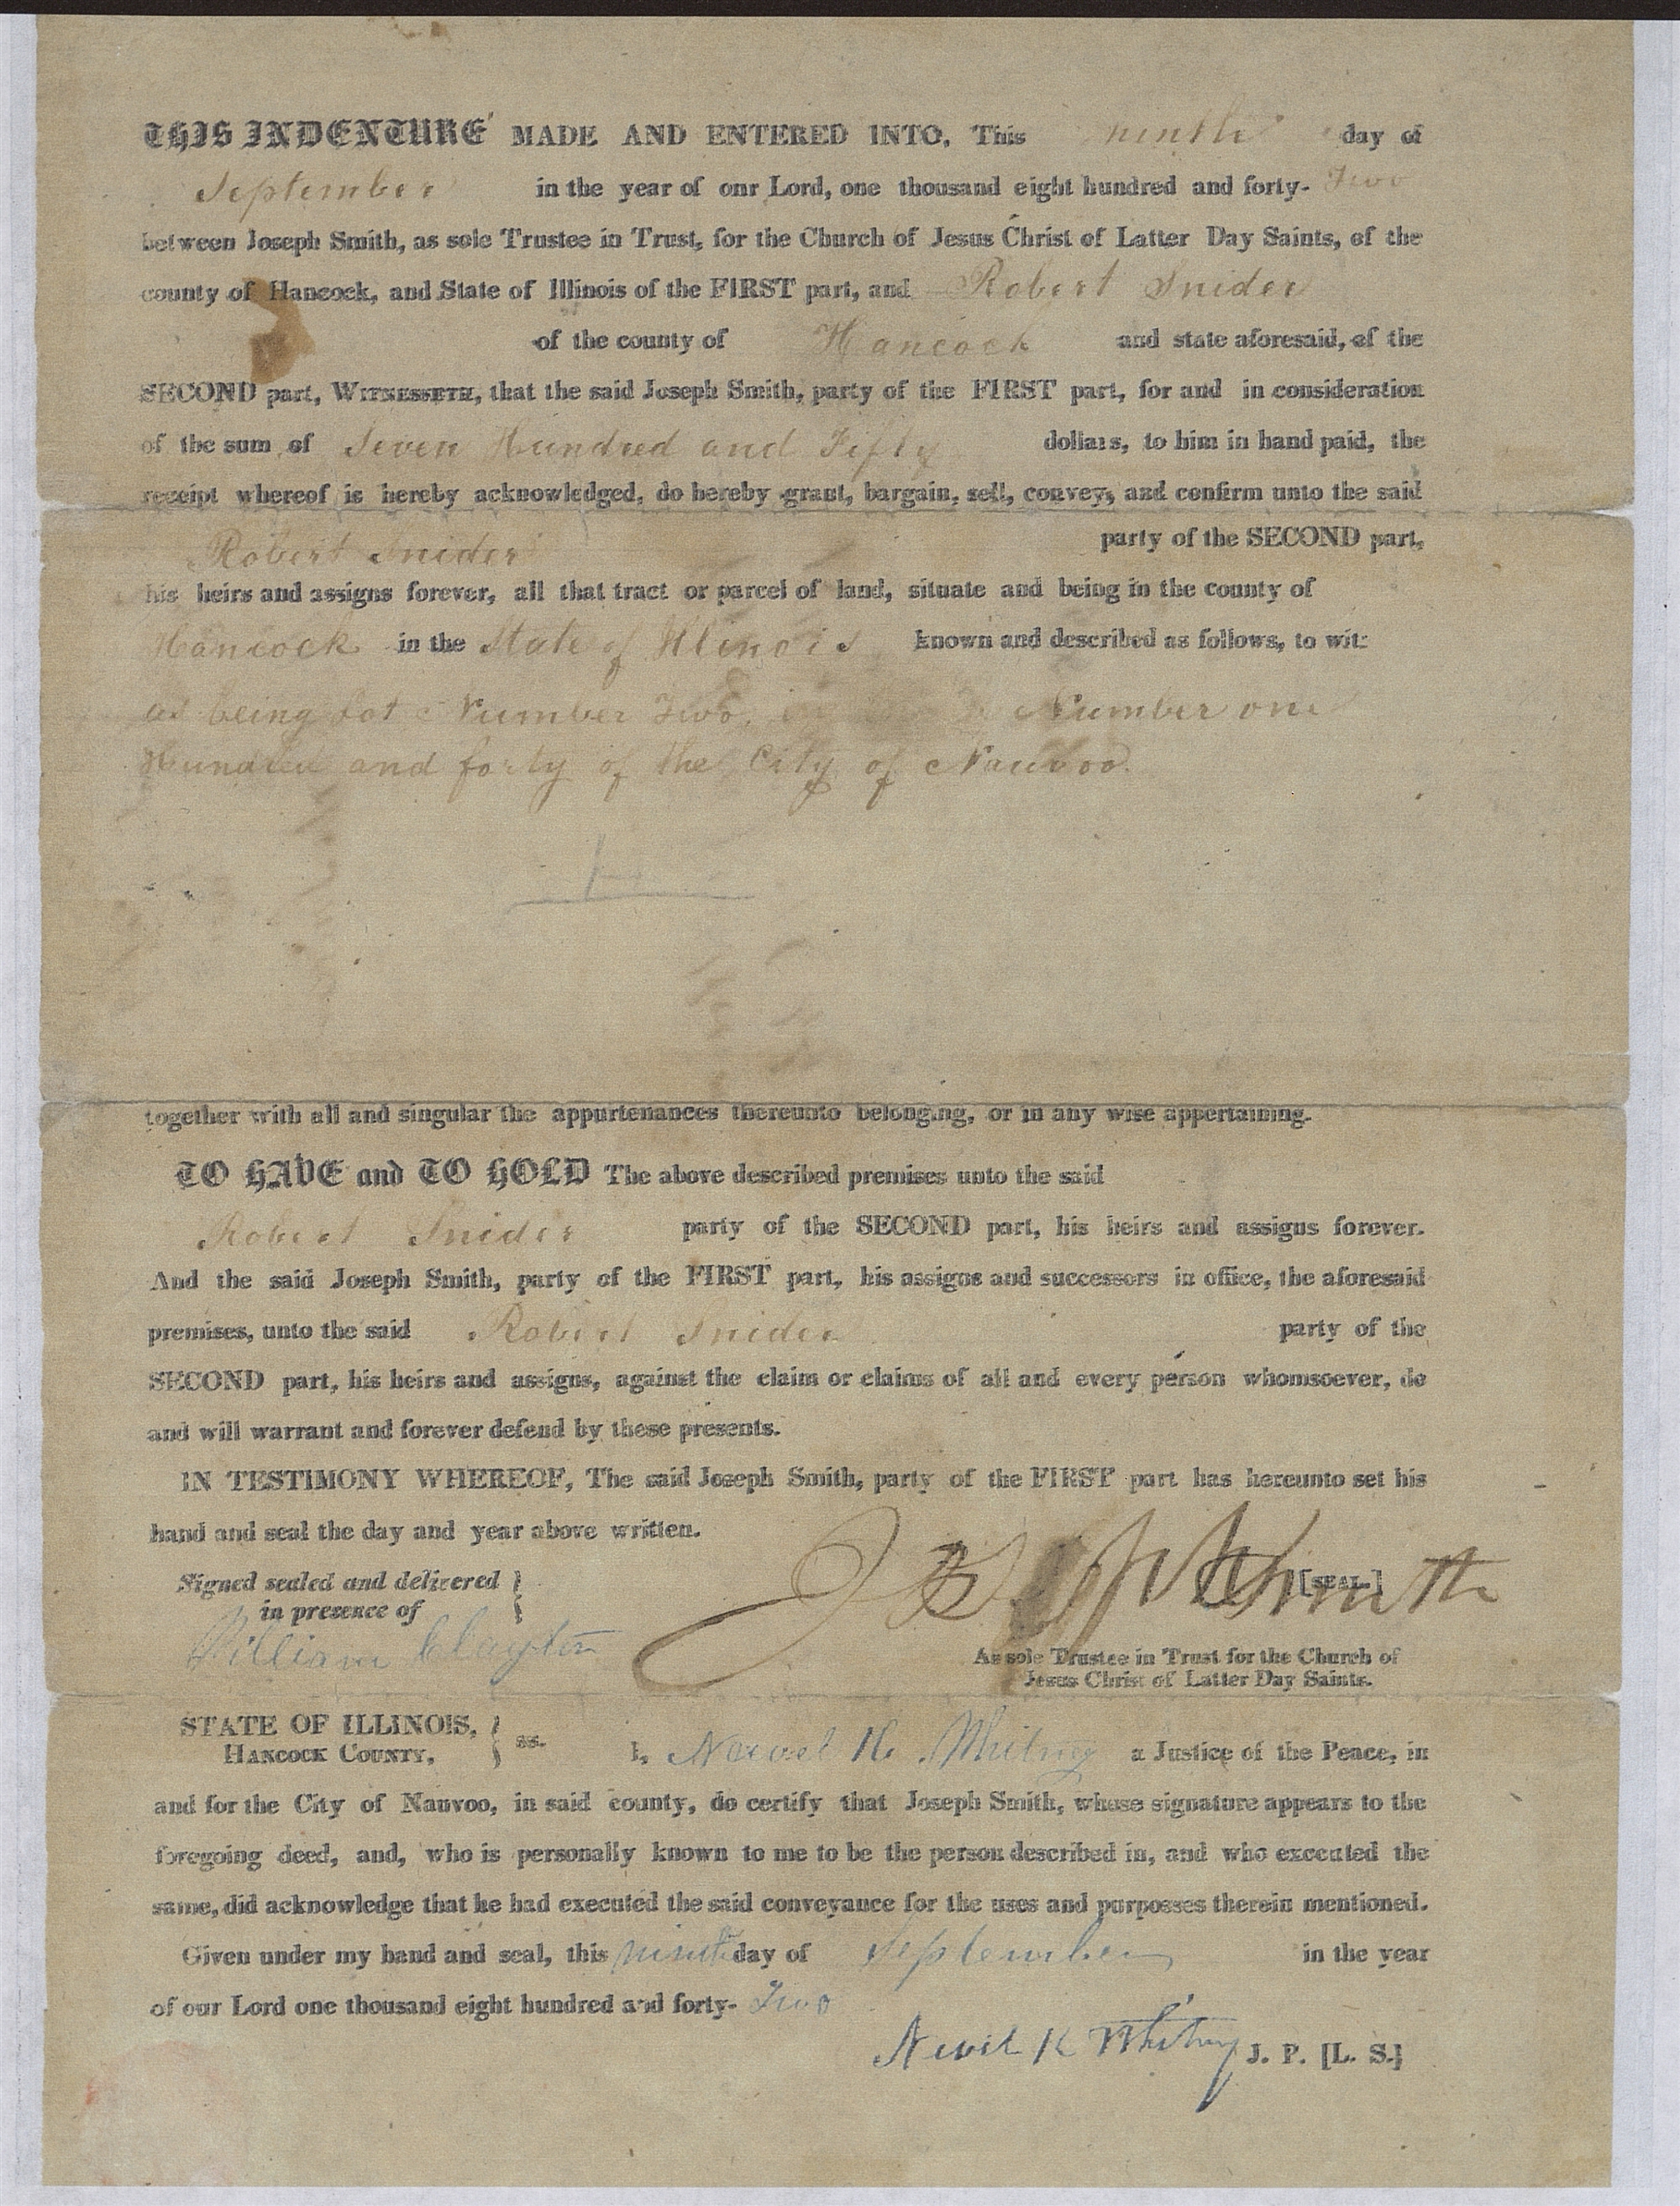 THIS INDENTURE MADE AND ENTERED INTO, This ninth day of
September in the year of onr Lord, one thousand eight hundred and forty- Two
between Joseph Smith, as sole Trustee in Trust, for the Church of Jesus Christ of Latter Day Saints, of the
county of Hancock, and State of Illinois of the FIRST part, and Robert Snider
of the county of Hancock and state aforesaid, of the
SECOND part, WITNESSETH, that the said Joseph Smith, party of the FIRST part, for and in consideration
of the sum of Seven Hundred and Fifty dollars, to him in hand paid, the
receipt whereof is hereby acknowledged, do hereby grant, bargain, sell, convey, and confirm unto the said
Robert Snider party of the SECOND part,
his heirs and assigns forever, all that tract or parcel of land, situate and being in the county of
Hancock in the State of Illinois known and described as follows, to wit:
as being Lot Number Two, Number one
Hundred and forty of the City of Nauvoo.
together with all and singular the appurtenances thereunto belonging, or in any wise appertaining.
TO HAVE and TO HOLD The above described premises unto the said
Robert Snider party of the SECOND part, his heirs and assigns forever.
And the said Joseph Smith, party of the FIRST part, his assigns and successors in office, the aforesaid
premises, unto the said Robert Snider party of the
SECOND part, his heirs and assigns, against the claim or claims of all and every person whomsoever, do
and will warrant and forever defend by these presents.
IN TESTIMONY WHEREOF, The said Joseph Smith, party of the FIRST part has hereunto set his
hand and seal the day and year above written.
Signed sealed and delivered }
in presence of
Joseph Smith [SEAL]
William Clayton
As sole Trustee in Trust for the Church of
Jesus Christ of Latter Day Saints.
STATE OF ILLINOIS, } ss.
HANCOCK COUNTY,
I, Newel K. Whitney a Justice of the Peace, in
and for the City of Nauvoo, in said county, do certify that Joseph Smith, whose signature appears to the
foregoing deed, and, who is personally known to me to be the person described in, and who executed the
same, did acknowledge that he had executed the said conveyance for the uses and purposses therein mentioned.
Given under my hand and seal, this ninth day of September in the year
of our Lord one thousand eight hundred and forty- Two
Newel K Whitney J. P. [L. S.]